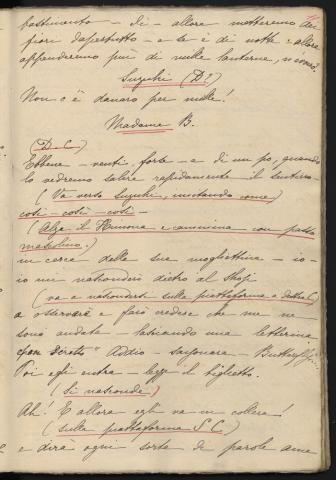 bastimento - di - allora metteremo dei
fiori dapertutto - e se è di notte - allora
appenderemo più di mille lanterne,
Suzuki (D?)
Non c'è danaro per mille!
Madame B.
(D. C)
Ebbene - venti, forse - e di un po, quando
lo vedremo salire rapidamente il sentiero -
(Va verso Suzuki, imitando come)
così - così - così -
(Alza il Kimono e cammina con passo
maschino.)
in cerca della sua mogliettina - io -
io mi nasconderò dietro al Shoji
(va a nascondersi sulla piattaforma a destra
a osservare e farò credere che me ne
sono andata - lasciando una letterina
Addio - sayonara - Butterfly
Poi egli entra - legge il biglietto.
(Si nasconde)
Ah! E allora egli va in collera!
(sulla piattaforma S C)
e dirà ogni sorta di parole ame